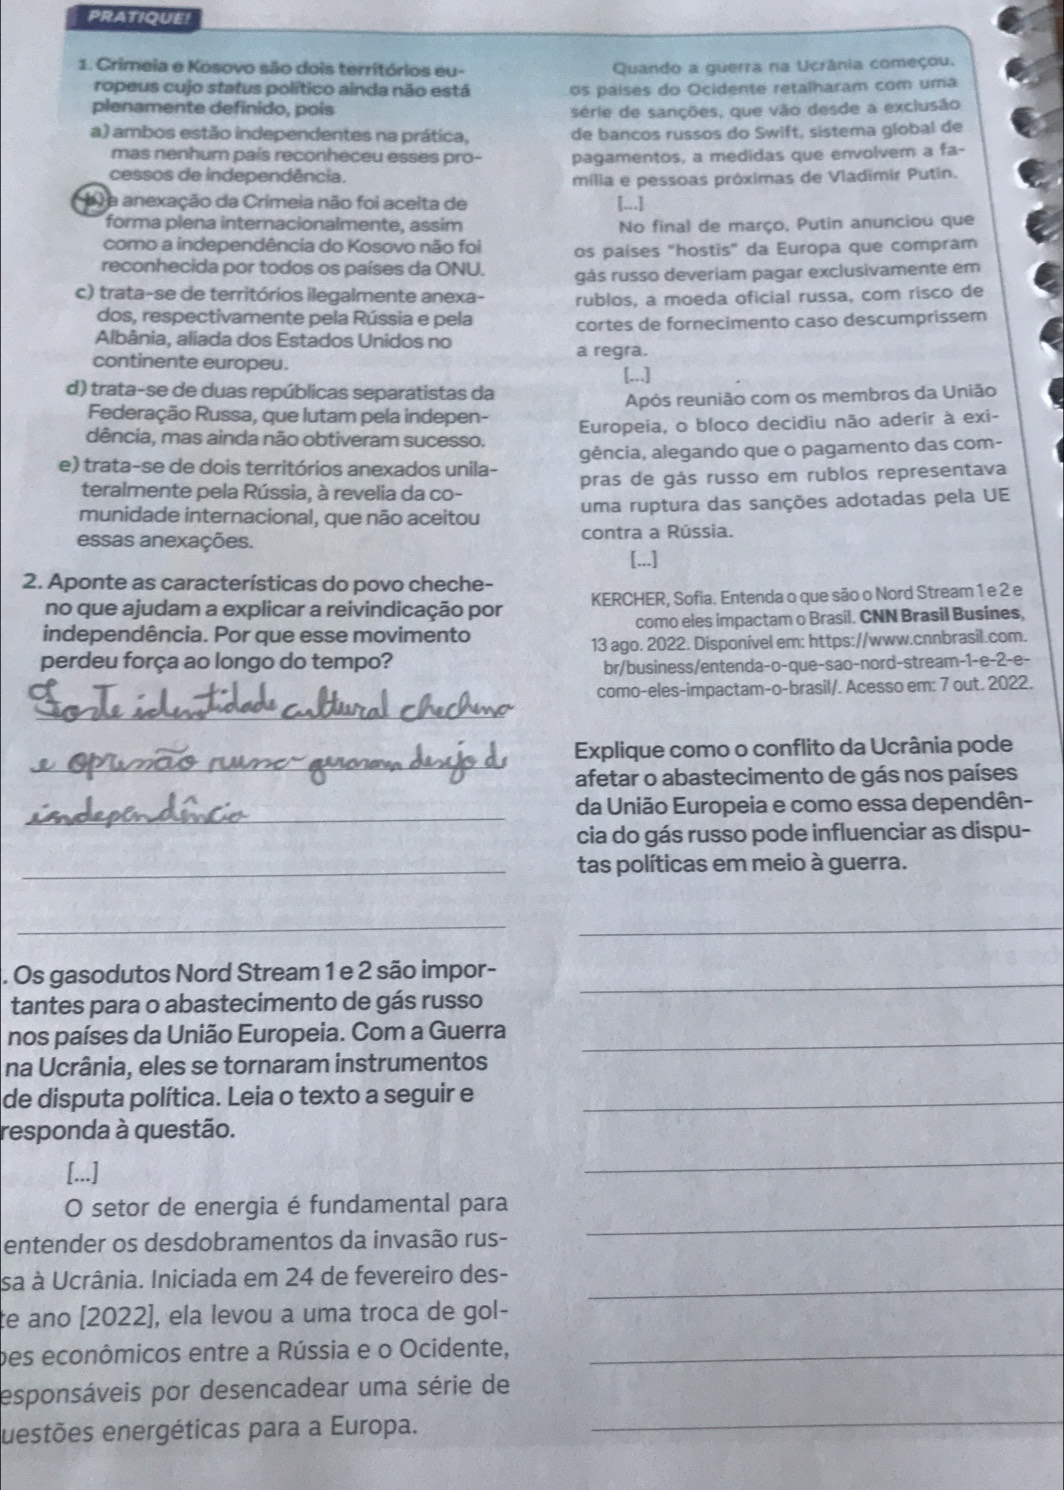 PRATIQUE!
1. Crimeia e Kosovo são dois territórios eu-
ropeus cujo status político ainda não está
plenamente definido, pois
a) ambos estão independentes na prática,
mas nenhum país reconheceu esses pro-
cessos de independência.
b) a anexação da Crimeia não foi aceita de
forma plena internacionalmente, assim
como a independência do Kosovo não foi
reconhecida por todos os países da ONU.
c) trata-se de territórios ilegalmente anexa-
dos, respectivamente pela Rússia e pela
Albânia, aliada dos Estados Unidos no
continente europeu.
d) trata-se de duas repúblicas separatistas da
Federação Russa, que lutam pela indepen-
dência, mas ainda não obtiveram sucesso.
e) trata-se de dois territórios anexados unila-
teralmente pela Rússia, à revelia da co-
munidade internacional, que não aceitou
essas anexações.
2. Aponte as características do povo cheche-
no que ajudam a explicar a reivindicação por
independência. Por que esse movimento
perdeu força ao longo do tempo?
Forte identidade cultural chechena
e opressão russa geraram desejo de
independência
. Os gasodutos Nord Stream 1 e 2 são impor-
tantes para o abastecimento de gás russo
nos países da União Europeia. Com a Guerra
na Ucrânia, eles se tornaram instrumentos
de disputa política. Leia o texto a seguir e
responda à questão.
[...]
O setor de energia é fundamental para
entender os desdobramentos da invasão rus-
sa à Ucrânia. Iniciada em 24 de fevereiro des-
te ano [2022], ela levou a uma troca de gol-
pes econômicos entre a Rússia e o Ocidente,
esponsáveis por desencadear uma série de
uestões energéticas para a Europa.
Quando a guerra na Ucrânia começou,
os países do Ocidente retalharam com uma
série de sanções, que vão desde a exclusão
de bancos russos do Swift, sistema global de
pagamentos, a medidas que envolvem a fa-
mília e pessoas próximas de Vladimir Putin.
[...]
No final de março, Putin anunciou que
os países "hostis" da Europa que compram
gás russo deveriam pagar exclusivamente em
rublos, a moeda oficial russa, com risco de
cortes de fornecimento caso descumprissem
a regra.
[...]
Após reunião com os membros da União
Europeia, o bloco decidiu não aderir à exi-
gência, alegando que o pagamento das com-
pras de gás russo em rublos representava
uma ruptura das sanções adotadas pela UE
contra a Rússia.
[...]
KERCHER, Sofia. Entenda o que são o Nord Stream 1 e 2 e
como eles impactam o Brasil. CNN Brasil Busines,
13 ago. 2022. Disponível em: https://www.cnnbrasil.com.
br/business/entenda-o-que-sao-nord-stream-1-e-2-e-
como-eles-impactam-o-brasil/. Acesso em: 7 out. 2022.
Explique como o conflito da Ucrânia pode
afetar o abastecimento de gás nos países
da União Europeia e como essa dependên-
cia do gás russo pode influenciar as dispu-
tas políticas em meio à guerra.